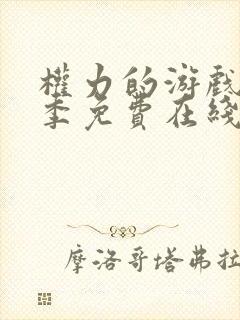 權力的游戲
季免費在綫
摩洛哥塔弗拉